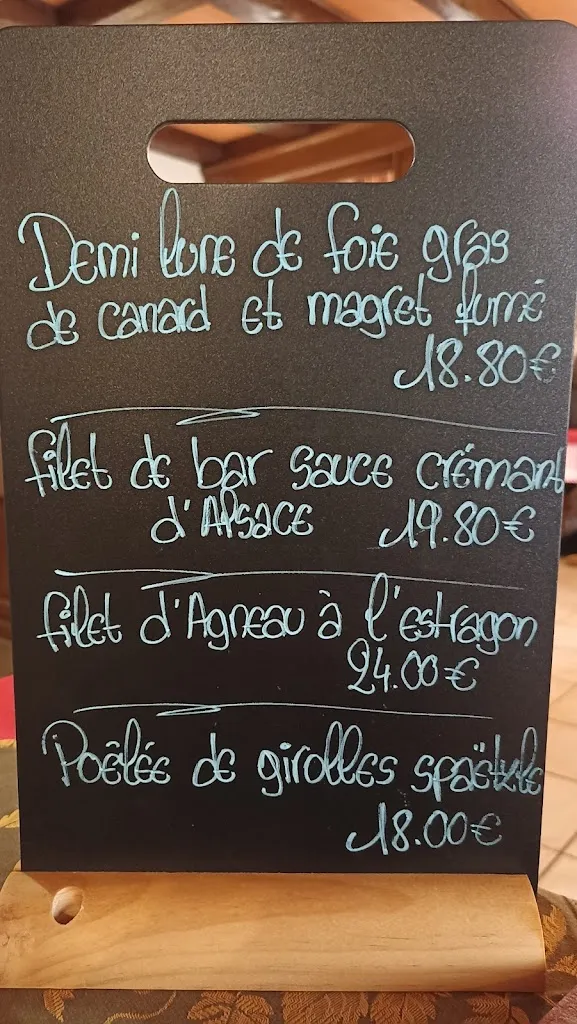 Demi lune de foie gras
de canard et magret fumé
18.80€
filet de bar sauce crémant
d'Alsace 19.80€
filet d'Agneau à l'estragon
24.00€
Poêlée de girolles spaëtzle
18.00€